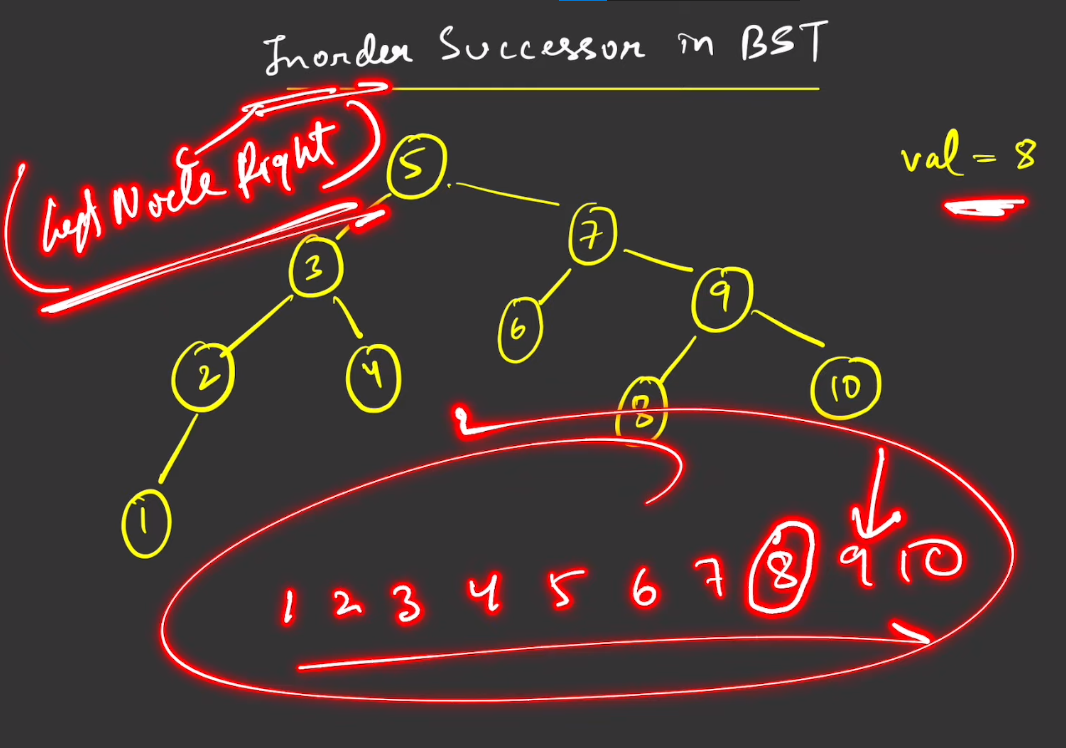 Inorder Successor in BST
(Left Node Right)
val = 8
5
7
3
9
6
2
4
10
8
1
1 2 3 4 5 6 7 8 9 10